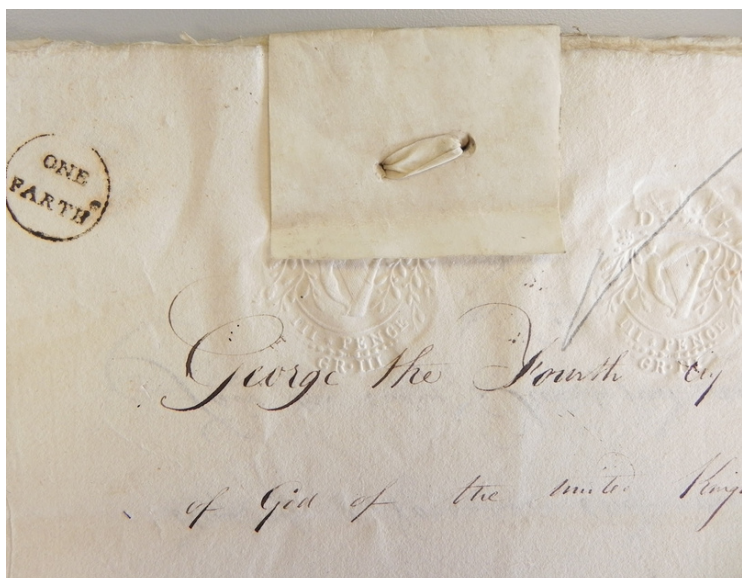 ONE
FARTHG
III. PENCE
GR·III
III. PENCE
George the Fourth by
of God of the united King